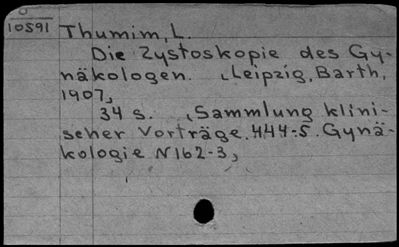 O
10591
Thumim, L.
Die Zystoskopie des Gy-
näkologen. Leipzig, Barth,
1907,
34 s. Sammlung klini-
scher Vorträge. 444-5. Gynä-
kologie N162-3,